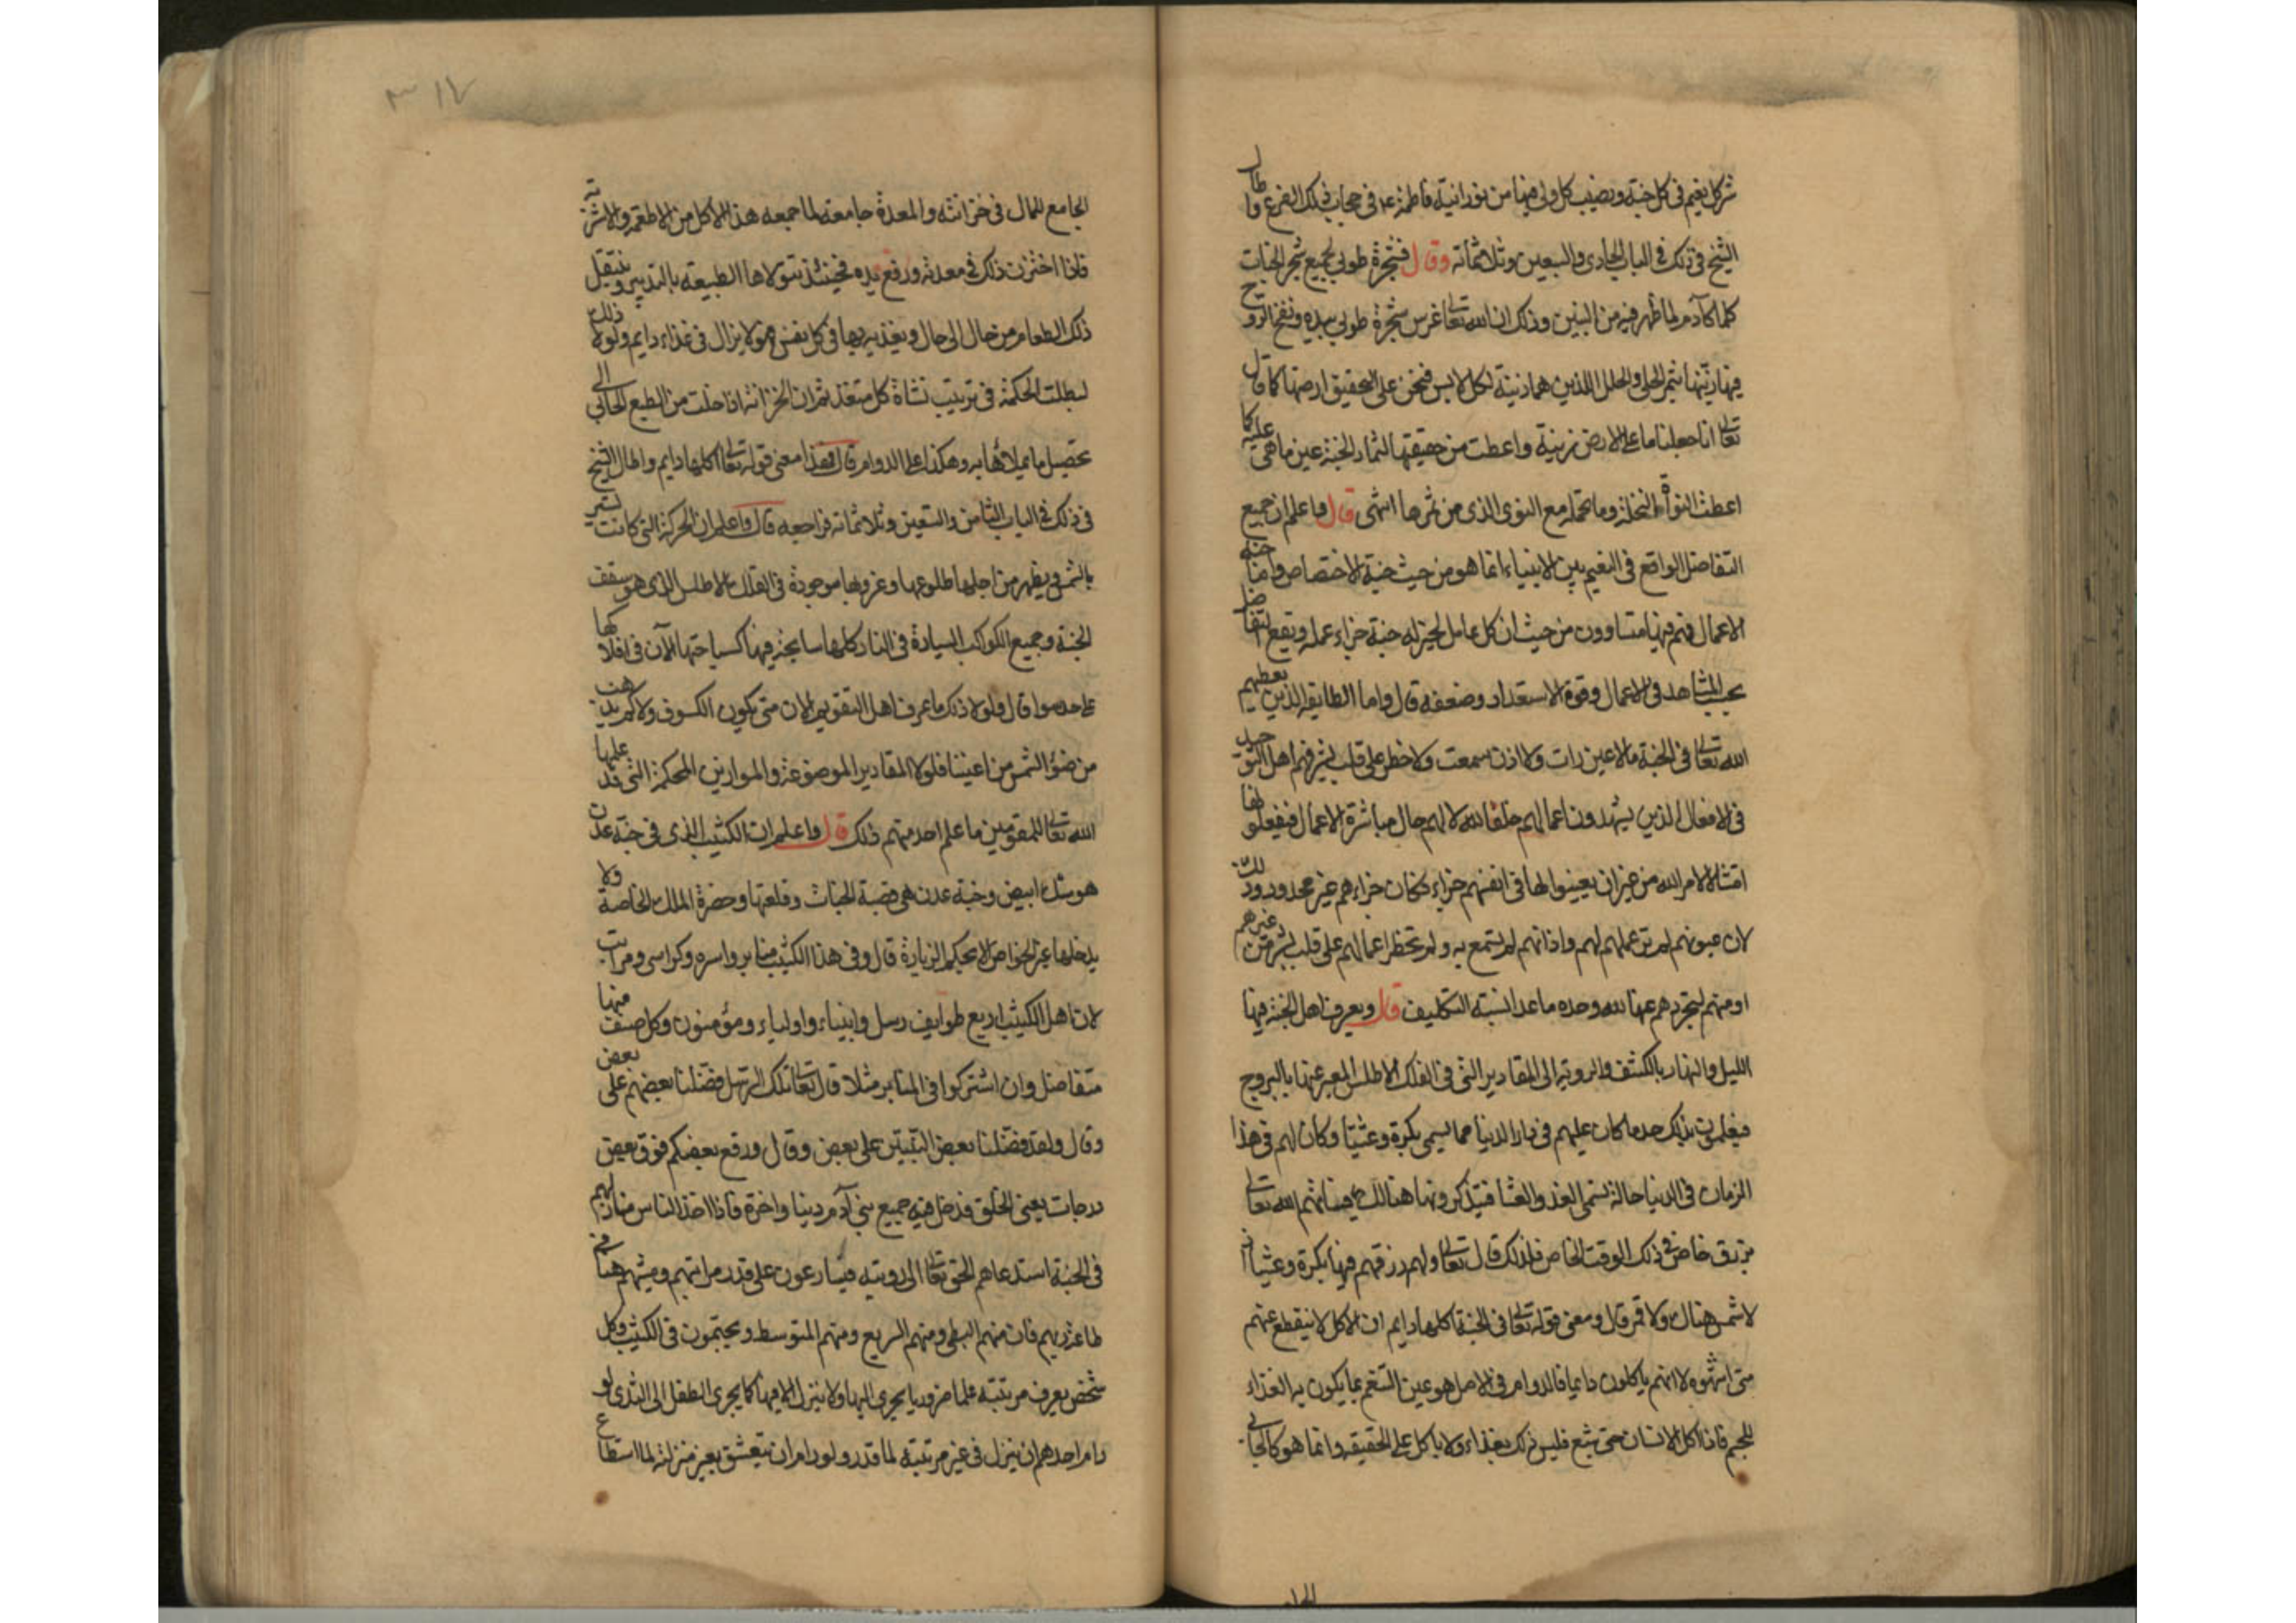 شركل نعيم في كل جنة ونصيب كل ولي فيها من نورانية فاطمة عد في حجاب ذلك الفرع واطال
الشيخ في ذلك في الباب الحادي والسبعين وثلاثمائة وقال فشجرة طوبى لجميع شجر الجنات
كلها كآدم لما ظهر فيه من النبيين وذلك ان الله تعالى غرس شجرة طوبى بيده ونفخ الروح
فيها زينها بثمر الحلي والحلل اللذين هما زينة لكل لابس فنحن على التحقيق ارضها كما قال
تعالى انا جعلنا ما على الارض زينة واعطت من حقيقتها لثمار الجنة عين ما هي عليه كما
اعطت النواة النخلة وما تحمله مع النوى الذي من ثمرها انتهى قال واعلم ان جميع
التفاضل الواقع في النعيم بين الانبياء انما هو من حيث جنة الاختصاص واما جنة
الاعمال فهم فيها متساوون من حيث ان كل عامل لخير له جنة جزاء عمله ويقع التفاضل
بحسب المشاهد في الاعمال وقوة الاستعداد وضعفه قال واما الطايفة الذين يعطيهم
الله تعالى في الجنة ما لا عين رات ولا اذن سمعت ولا خطر على قلب بشر فهم اهل التوحيد
في الافعال الذين يشهدون اعمالهم خلقا لله لا لهم حال مباشرة الاعمال فيفعلونها
امتثالا لامر الله من غير ان يعينوا لها في انفسهم جزاء فكان جزاءهم غير محدود وذلك
لان عيونهم لم تر عملهم لهم واذانهم لم تسمع به ولم تخطر اعمالهم على قلب بشر من غيرهم
او منهم لتجردهم عنها لله وحده ما عدا نسبة التكليف قال ويعرف اهل الجنة فيها
الليل والنهار بالكشف والروية الى المقادير التي في الفلك الاطلس المعبر عنها بالبروج
فيعلمون بذلك حد ما كان عليهم في دار الدنيا مما يسمى بكرة وعشيا وكان لهم في هذا
الزمان في الدنيا حالة تسمى الغذ والعشا فيتذكرونها هنالك فياتيهم الله تعالى
برزق خاص في ذلك الوقت الخاص فلذلك قال تعالى ولهم رزقهم فيها بكرة وعشيا اذ
لا شمس هنالك ولا قمر قال ومعنى قوله تعالى في الجنة اكلها دايم ان الاكل لا ينقطع عنهم
متى اشتهوه لا انهم ياكلون دايما فالدوام في الاصل هو عين التنعم بما يكون به الغذاء
للجسم فاذا اكل الانسان حتى شبع فليس ذلك بغذاء ولا باكل على الحقيقة وانما هو كالجابي
الجامع للمال في خزانته والمعدة جامعة لما جمعه هذا الاكل من الاطعمة والاشربة
فاذا اختزن ذلك في معدته ورفع يده فحينئذ تتولاها الطبيعة بالتدبير وينتقل
ذلك الطعام من حال الى حال ويغذيه بها في كل نفس فهو لا يزال في غذاء دايم ولولا ذلك
لبطلت الحكمة في ترتيب نشاة كل متغذ ثم ان الخزانة اذا خلت من الطبع الجابي الى
تحصيل ما يملاها به وهكذا على الدوام قال فهذا معنى قوله تعالى اكلها دايم واطال الشيخ
في ذلك في الباب الثامن والتسعين وثلاثمائة فراجعه قال واعلم ان الحركة التي كانت تسير
بالشمس ويظهر من اجلها طلوعها وغروبها موجودة في الفلك الاطلس الذي هو سقف
الجنة وجميع الكواكب السيارة في النار كلها سابحة فيها كسباحتها الآن في افلاكها
على حد سوا قال ولولا ذلك ما عرف اهل التقويم الان متى يكون الكسوف ولا كم يذهب
من ضوء الشمس من اعيننا فلولا المقادير الموضوعة والموازين المحكمة التي قد علمها
الله تعالى للمقومين ما علم احد منهم ذلك قال واعلم ان الكثيب الذي في جنة عدن
هو مسك ابيض وجنة عدن هي قصبة الجنات وقلعتها وحضرة الملك الخاصة ولا
يدخلها غير الخواص الا بحكم الزيارة قال وفي هذا الكثيب منابر واسرة وكراسي ومراتب
لان اهل الكثيب اربع طوايف رسل وانبياء واولياء ومؤمنون وكل صنف منها
متفاضل وان اشتركوا في المنابر مثلا قال تعالى تلك الرسل فضلنا بعضهم على بعض
وقال ولقد فضلنا بعض النبيين على بعض وقال ورفع بعضكم فوق بعض
درجات يعني الخلق فدخل فيه جميع بني آدم دنيا واخرة فاذا اخذ الناس منازلهم
في الجنة استدعاهم الحق تعالى الى رويته فيسارعون على قدر مراتبهم ومشيهم هنا في
طاعة ربهم فان منهم البطي ومنهم السريع ومنهم المتوسط ويجتمعون في الكثيب وكل
شخص يعرف مرتبته علما ضروريا يجري اليها ولا ينزل الا فيها كما يجري الطفل الى الثدي ولو
رام احدهم ان ينزل في غير مرتبته لما قدر ولو رام ان يتعشق بغير منزلته لما استطاع